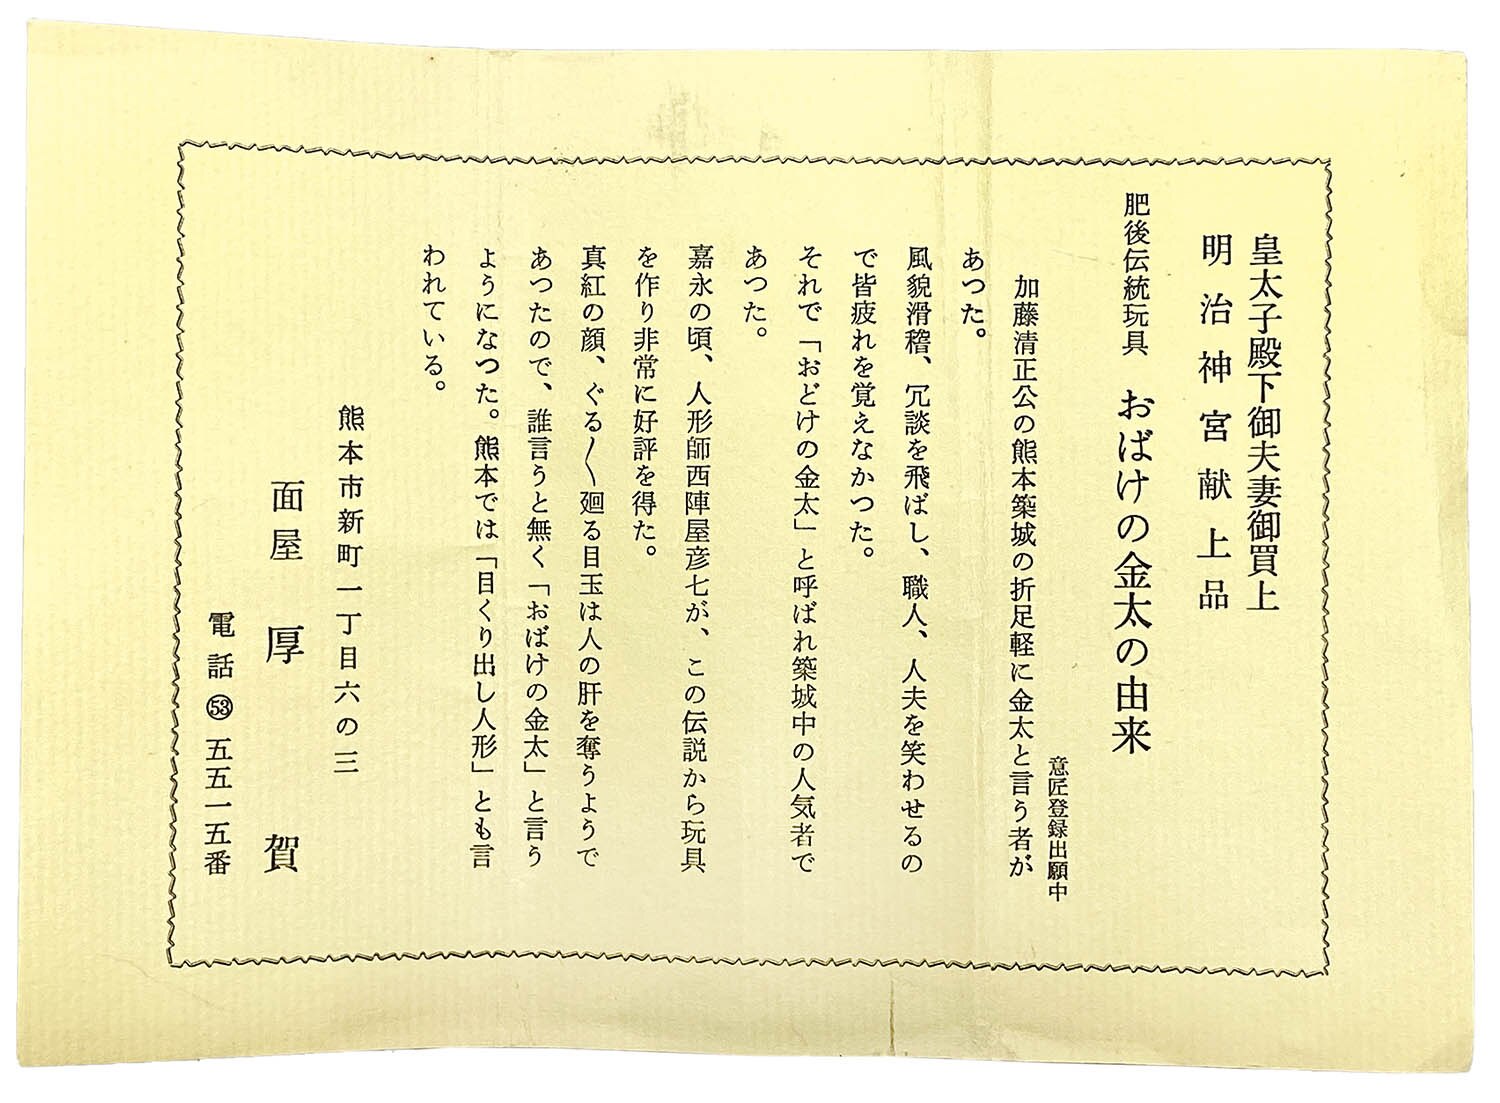 皇太子殿下御夫妻御買上
明治神宮献上品
肥後伝統玩具 おばけの金太の由来
意匠登録出願中
加藤清正公の熊本築城の折足軽に金太と言う者が
あつた。
風貌滑稽、冗談を飛ばし、職人、人夫を笑わせるの
で皆疲れを覚えなかつた。
それで「おどけの金太」と呼ばれ築城中の人気者で
あつた。
嘉永の頃、人形師西陣屋彦七が、この伝説から玩具
を作り非常に好評を得た。
真紅の顔、ぐる〱廻る目玉は人の肝を奪うようで
あつたので、誰言うと無く「おばけの金太」と言う
ようになつた。熊本では「目くり出し人形」とも言
われている。
熊本市新町一丁目六の三
面屋 厚賀
電話 53 五五一五番